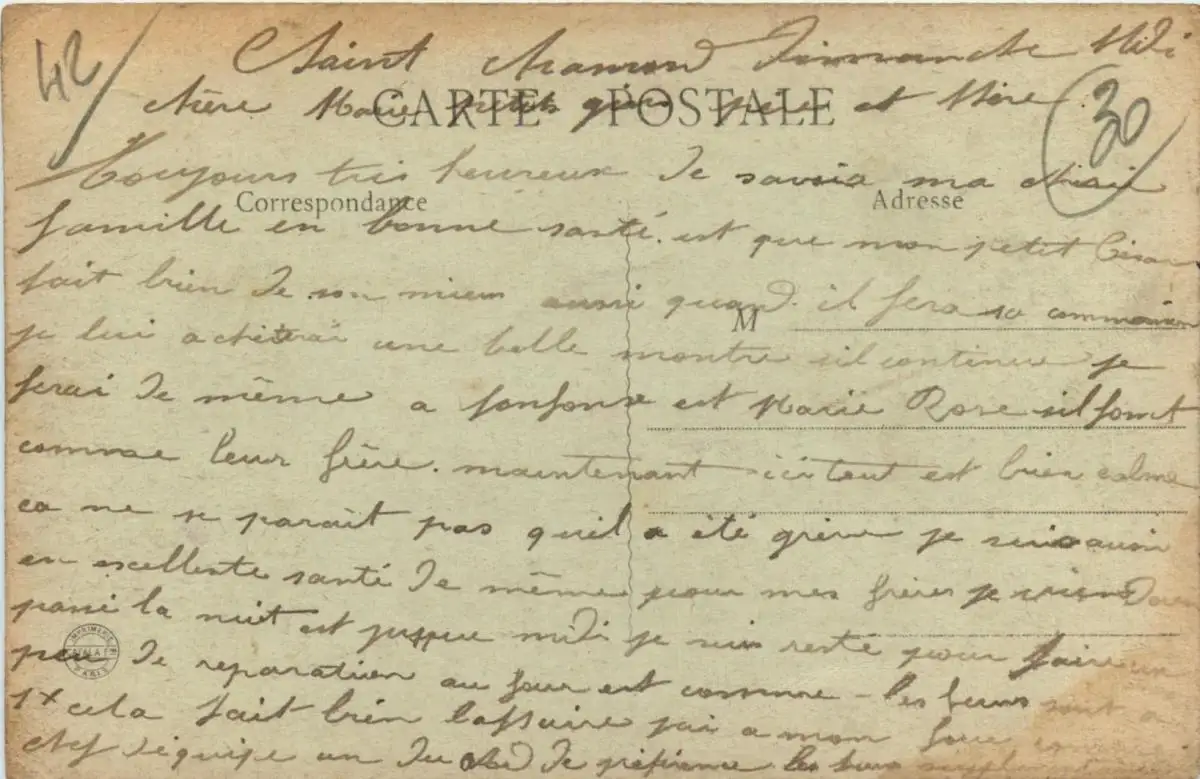 42
Saint Chamond Dimanche Midi
30
chère Marie petits père et Mère
CARTE POSTALE
Toujours tres heureux de savoir ma
Correspondance
Adresse
famille en bonne santé. est que mon petit César
fait bien de son mieux aussi quand il fera sa commonion
M
je lui achiterai une belle montre sil continue je
ferai de même a fonfonse est Marie Rose sil font
comme leur frère. maintenant ici tout est bien calme
ca ne se parait pas quil a été grève je suis aussi
en excellente santé de même pour mes frères je
passé la nuit est jusque midi je suis resté pour faire un
IMPRIMERIE
PARIS
peu de reparation au four est comme les fours sont a
1x cela fait bien laffaire jai a mon four
chef déquipe un du de préférence les